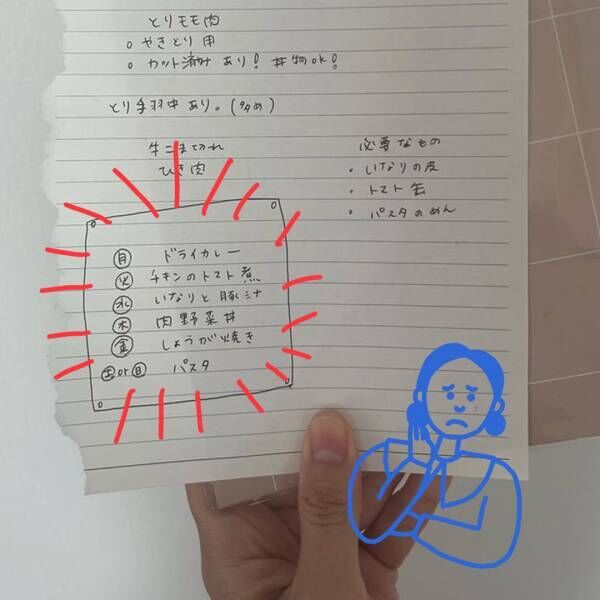 とりモモ肉
○ やきとり用
○ カット済みあり! 丼物ok!
とり手羽中あり。(多め)
牛こま切れ
ひき肉
必要なもの
・いなりの皮
・トマト缶
・パスタのめん
月 ドライカレー
火 チキンのトマト煮
水 いなりと豚汁
木 肉野菜丼
金 しょうが焼き
土or日 パスタ